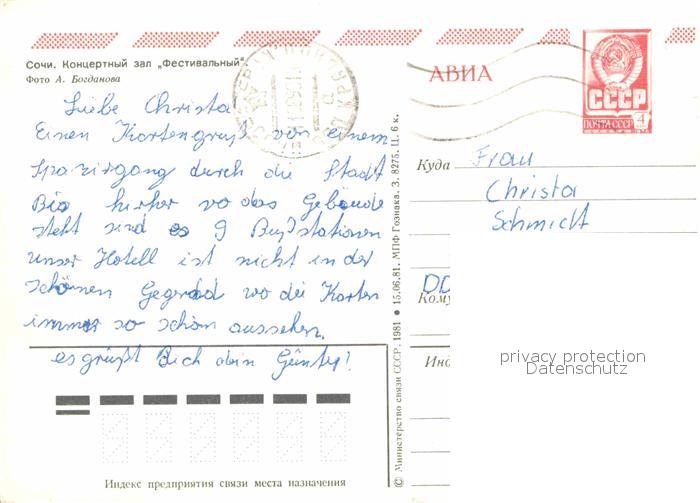 Сочи. Концертный зал „Фестивальный"
Фото А. Богданова
Liebe Christa
Einen Kartengruß von einem
Spaziergang durch die Stadt
Bis hierher wo das Gebäude
steht sind es 9 Busstationen
unser Hotell ist nicht in der
schönen Gegend wo die Karten
immer so schön aussehen.
es grüßt Dich dein Günty!
Индекс предприятия связи места назначения
© Министерство связи СССР. 1981 ● 15.06.81. МПФ Гознака. З. 8275. Ц. 6 к.
АВИА
СССР
ПОЧТА СССР
4
Куда
Frau
Christa
Schmidt
DD
Кому
Инд
privacy protection
Datenschutz